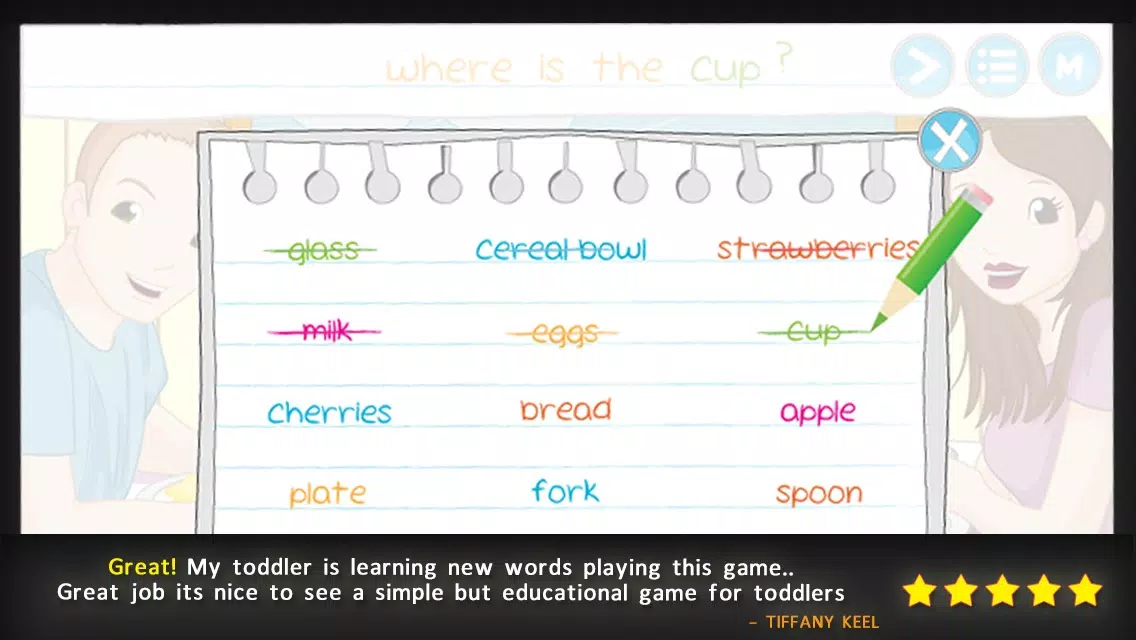 where is the cup?
M
X
glass cereal bowl strawberries
milk eggs cup
cherries bread apple
plate fork spoon
Great! My toddler is learning new words playing this game..
Great job its nice to see a simple but educational game for toddlers
– TIFFANY KEEL